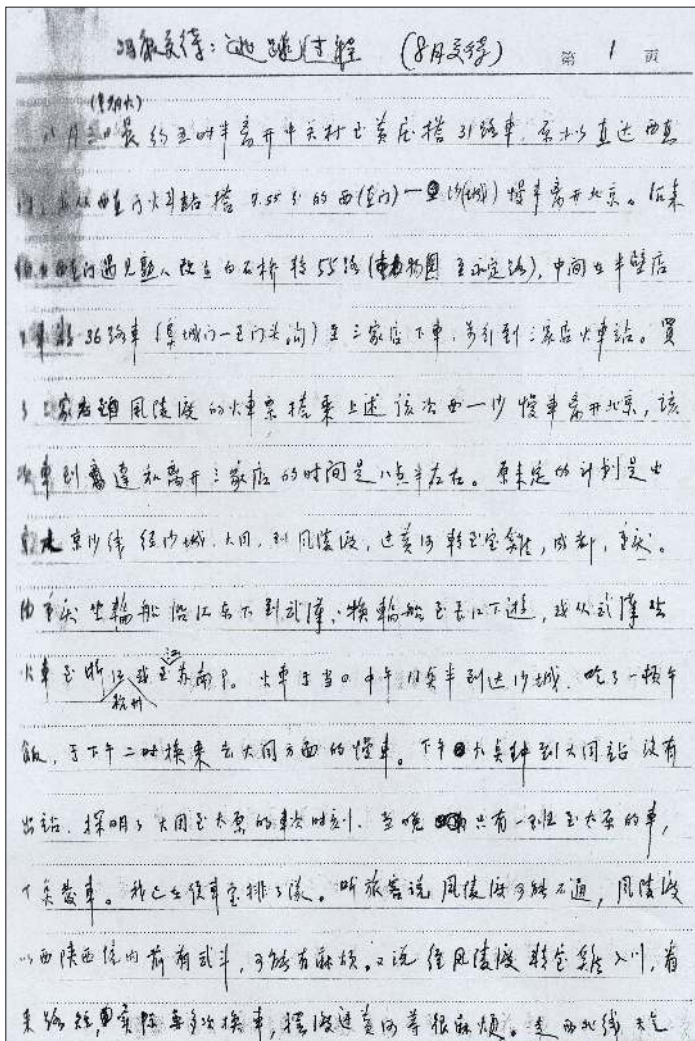 冯敬兰待：逃跑过程 (8月交待) 第 1 页
(星期六)
八月三日晨约五时半离开中关村已黄庄搭31路車，原拟直达西直
门，后从西直门火車站搭7.55分的西(直门)一至沙(城)慢車离开北京。后来
在西直门遇见熟人改至白石桥转55路(動物園至永定路)，中间在半壁店
36路車(阜城门一至门头沟)至三家店下車，步行到三家店火車站。買
了三家店至風陵渡的火車票搭乘上述该次西一沙慢車离开北京，该
次車到达和离开三家店的时间是八点半左右。原来定的计划是由
京沙线经沙城、大同、到風陵渡，过黄河转至宝雞，成都，重庆。
由重庆坐輪船沿江东下到武漢，换輪船至长江下游，或从武漢坐
火車至浙江杭州或至江苏南下。火車于当日中午12点半到达沙城，吃了一顿午
飯，于下午二时换乘去大同方面的慢車。下午六点钟到大同站没有
出站，探明了大同至太原的車次时刻。当晚只有一班至太原的車，
个点發車。我已在候車室排了隊。听旅客说風陵渡可能不通，風陵渡
以西陕西境内前有武斗，可能有麻烦。又说经風陵渡转宝雞入川，看
来路短，实际要多次换車，摆渡过黄河等很麻烦。走西北线